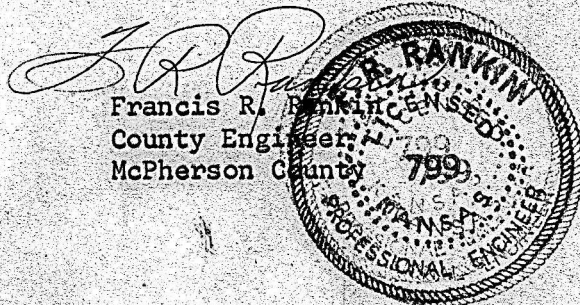 F R Rankin
Francis R. Rankin
County Engineer
McPherson County
F. R. RANKIN
LICENSED
799
KANSAS
PROFESSIONAL ENGINEER